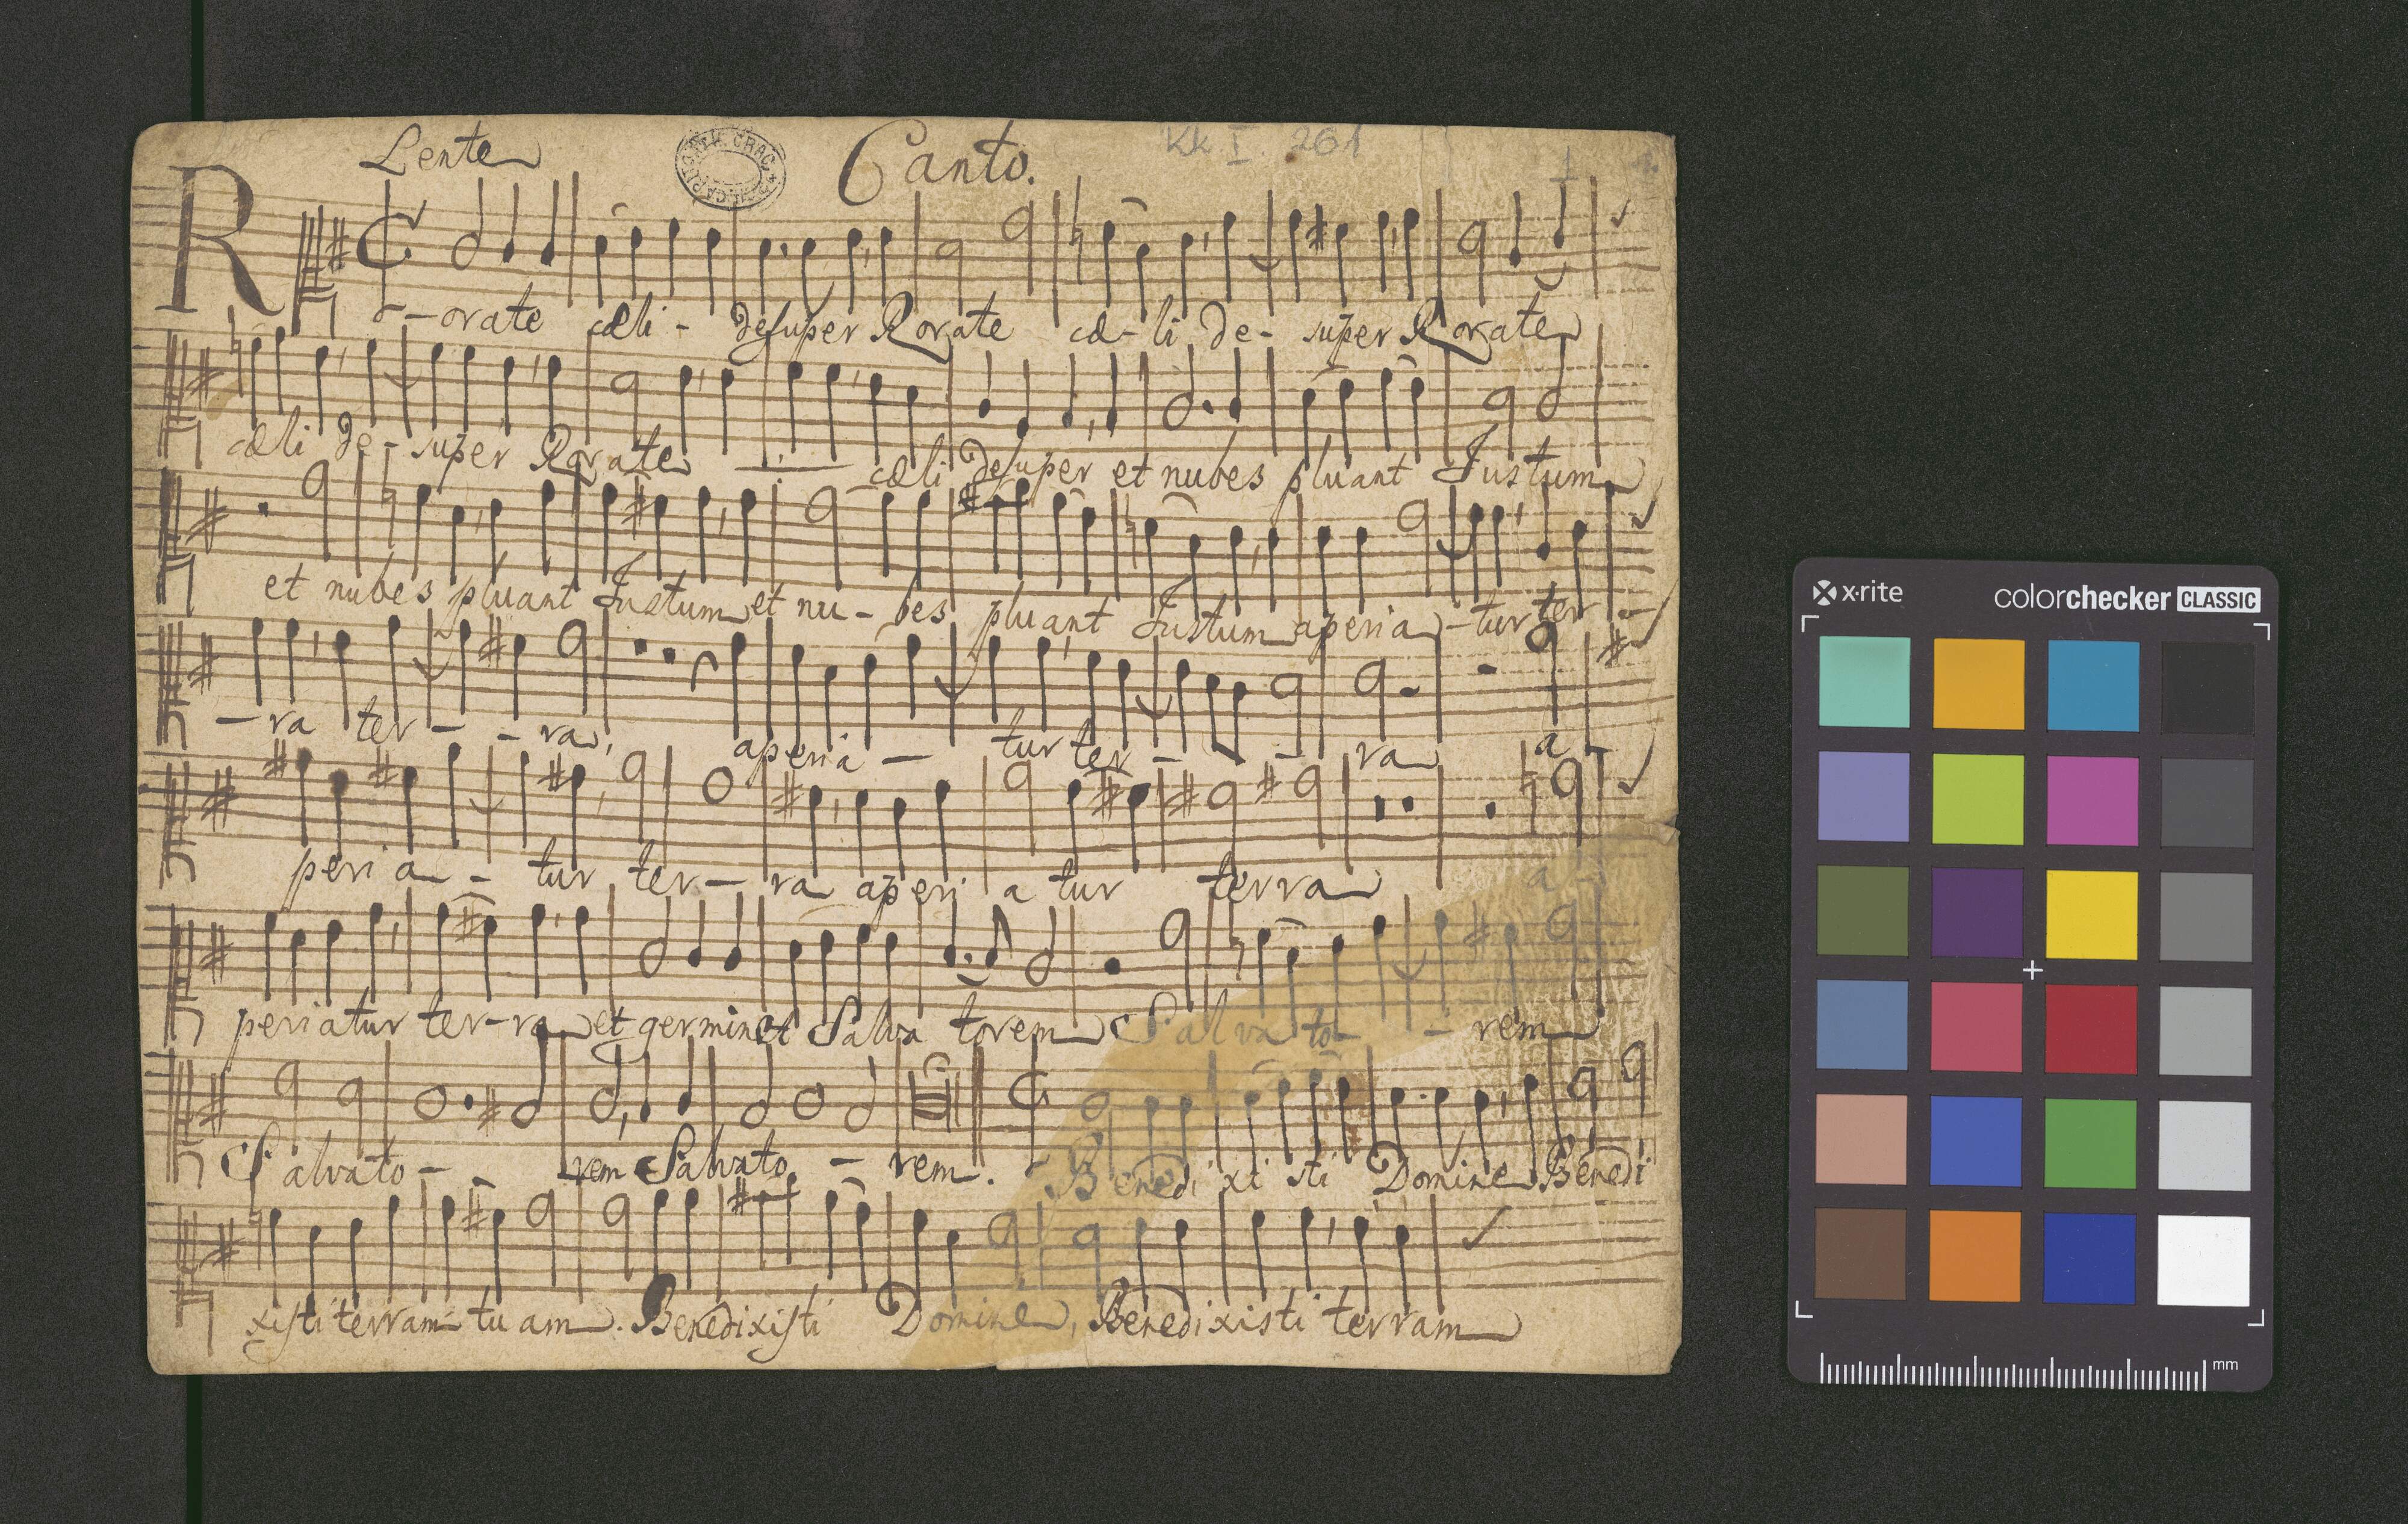 Lente Canto. Kk I. 261
R - - orate cæli - desuper Rorate cæ - li de - super Rorate
cæli de - super Rorate cæli desuper et nubes pluant Justum
et nubes pluant Justum et nu - bes pluant Justum aperia - tur ter
- ra ter - - ra, aperia - tur ter - - ra a
peri a - - tur ter - ra aperi a tur terra a -
periatur ter - ra et germinet Salva torem Salva to - - rem
Salvato - - rem Salvato - rem. Benedi xi sti Domine Benedi
xisti terram tu am. Benedixisti Domine, Benedixisti terram
x-rite colorchecker CLASSIC
mm